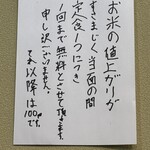 お米の値上がりが
すさまじく当面の間
定食一つにつき
1回まで無料とさせて頂きます。
申し訳ございません。
それ以降は100円です。